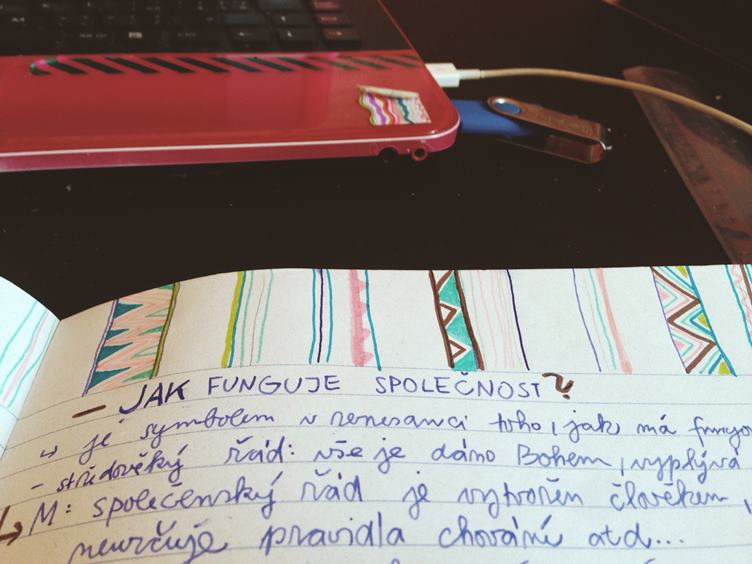 - JAK FUNGUJE SPOLEČNOST?
↳ je symbolem v renesanci toho, jak má fungov
- středověký řád: vše je dáno Bohem, vyplývá
↳ M: společenský řád je vytvořen člověkem,
neurčuje pravidla chování atd...